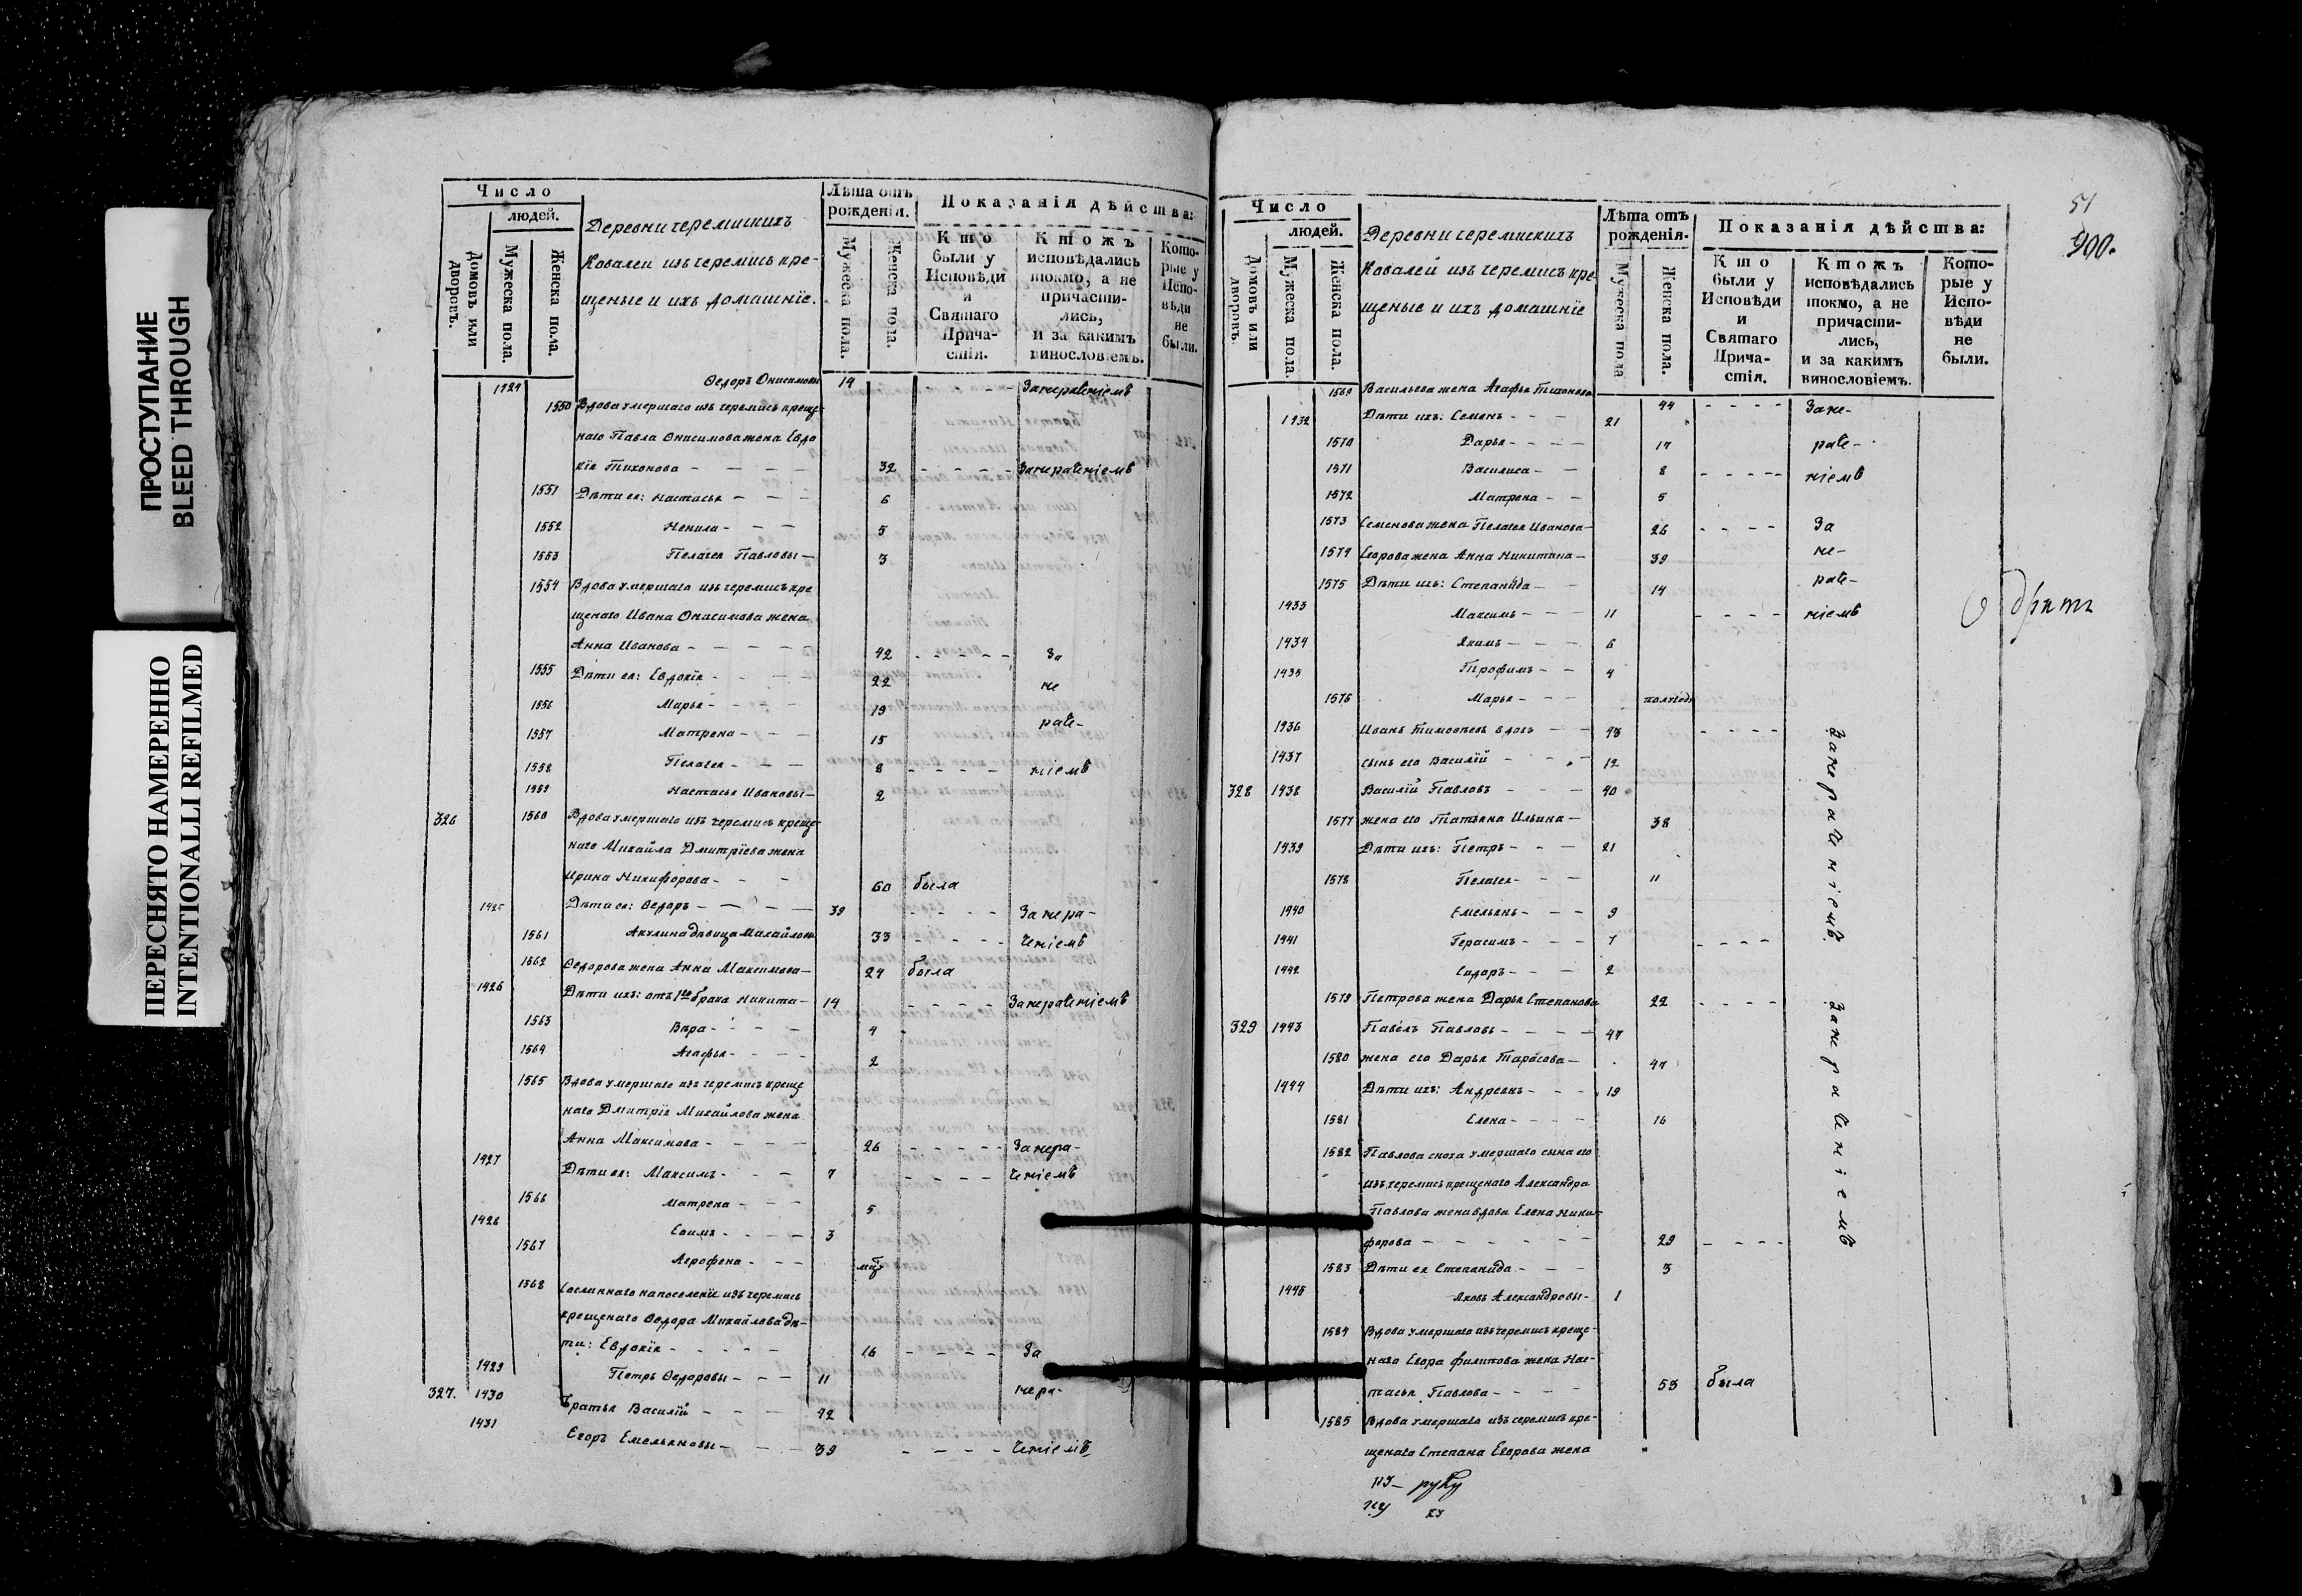 ПРОСТУПАНИЕ
BLEED THROUGH
ПЕРЕСНЯТО НАМЕРЕННО
INTENTIONALLI REFILMED
Число
людей.
Домовъ или дворовъ.
Мужеска пола.
Женска пола.
Деревни черемискихъ
Ковалей изъ черемисъ кре-
щеные и ихъ домашніе.
Лѣта отъ рожденія.
Мужеска пола.
Женска пола.
Показанія дѣйства:
Кто были у Исповѣди и Святаго Прича-стія.
Ктожъ исповѣдались токмо, а не причасти-лись, и за какимъ винословіемъ.
Кото-рые у Испо-вѣди не были.
1424 Ѳедоръ Онисимовы 14 - - - - Занераченіемъ
1550 Вдова умершаго изъ черемисъ креще-
наго Павла Онисимова жена Евдо
кія Тихонова - - - - 32 - - - - Занераченіемъ
1551 Дѣти ея: Настасья - - - 6
1552 Ненила - - - 5
1553 Пелагея Павловы - 3
1554 Вдова умершаго изъ черемисъ кре
щенаго Ивана Онисимова жена
Анна Иванова - - - - 42 - - - - - За
1555 Дѣти ея: Евдокія - - - 22 не
1556 Марья - - - - 19 раче-
1557 Матрена - - - 15
1558 Пелагея - - - 8 - - - - ніемъ
1559 Настасья Ивановы - 2
326 1560 Вдова умершаго изъ черемисъ креще-
наго Михайла Дмитріева жена
Ирина Никифорова - - - 60 была
1425 Дѣти ея: Ѳедоръ - - - - 39 - - - - Занера-
1561 Акулина дѣвица Михайловы 33 - - - - ченіемъ
1562 Ѳедорова жена Анна Максимова - 24 была
1426 Дѣти ихъ: отъ 1го брака Никита - 14 - - - - Занераченіемъ
1563 Вѣра - - - - 4
1564 Агафья - - - - 2
1565 Вдова умершаго изъ черемисъ креще
наго Дмитрія Михайлова жена
Анна Максимова - - - - 26 - - - - - Занера-
1427 Дѣти ея: Максимъ - - - 7 - - - - ченіемъ
1566 Матрена - - - 5
1428 Евимъ - - - - 3
1567 Агрофена - - - мцъ
1568 Сосланнаго на поселеніе изъ черемисъ
крещенаго Ѳедора Михайлова дѣ-
ти: Евдокія - - - - - 16 - - - - За
1429 Петръ Ѳедоровы - - - 11
327. 1430 Братья Василій - - - - 42 нера-
1431 Егоръ Емельяновы - - - 39 - - - - ченіемъ
51
900.
Число
людей.
Домовъ или дворовъ.
Мужеска пола.
Женска пола.
Деревни черемискихъ
Ковалей изъ черемисъ кре
щеные и ихъ домашніе
Лѣта отъ рожденія.
Мужеска пола
Женска пола.
Показанія дѣйства:
Кто были у Исповѣди и Святаго Прича-стія.
Ктожъ исповѣдались токмо, а не причасти-лись, и за какимъ винословіемъ.
Кото-рые у Испо-вѣди не были.
1569 Васильева жена Агафья Тихонова 44 - - - - Зане-
1432 Дѣти ихъ: Семенъ - - - 21
1570 Дарья - - - - 17 раче-
1571 Василиса - - 8 - - - - ніемъ
1572 Матрена - - 5
1573 Семенова жена Пелагея Иванова - 26 - - - - За
1574 Егорова жена Анна Никитина - 39 не-
1575 Дѣти ихъ: Степанида - - 14 раче-
1433 Максимъ - - - 11 - - - - ніемъ
1434 Якимъ - - - 6
1435 Трофимъ - - 4
1576 Марья - - - полгода
1436 Иванъ Тимофеевъ вдовъ - - 43 - - - - Занераченіемъ.
1437 сынъ его Василій - - - 12
328 1438 Василій Павловъ - - - 40
1577 жена его Татьяна Ильина - 38
1439 Дѣти ихъ: Петръ - - - 21
1578 Пелагея - - - 11
1440 Емельянъ - - - 9
1441 Герасимъ - - - 7 - - - -
1442 Сидоръ - - - 2 Занераченіемъ
1579 Петрова жена Дарья Степанова 22 - - - -
329 1443 Павелъ Павловъ - - - - 47
1580 жена его Дарья Тарасова - 47
1444 Дѣти ихъ: Андреянъ - - - 19
1581 Елена - - - - 16
1582 Павлова сноха умершаго сына его
изъ черемисъ крещенаго Александра
Павлова жена вдова Елена Ники-
форова - - - - - - 29 - - - -
1583 Дѣти ея Степанида - - - 3
1445 Яковъ Александровы - 1
1584 Вдова умершаго изъ черемисъ креще-
наго Егора Филипова жена Нас-
тасья Павлова - - - - 53 была
1585 Вдова умершаго изъ черемисъ кре-
щенаго Степана Егорова жена
руку